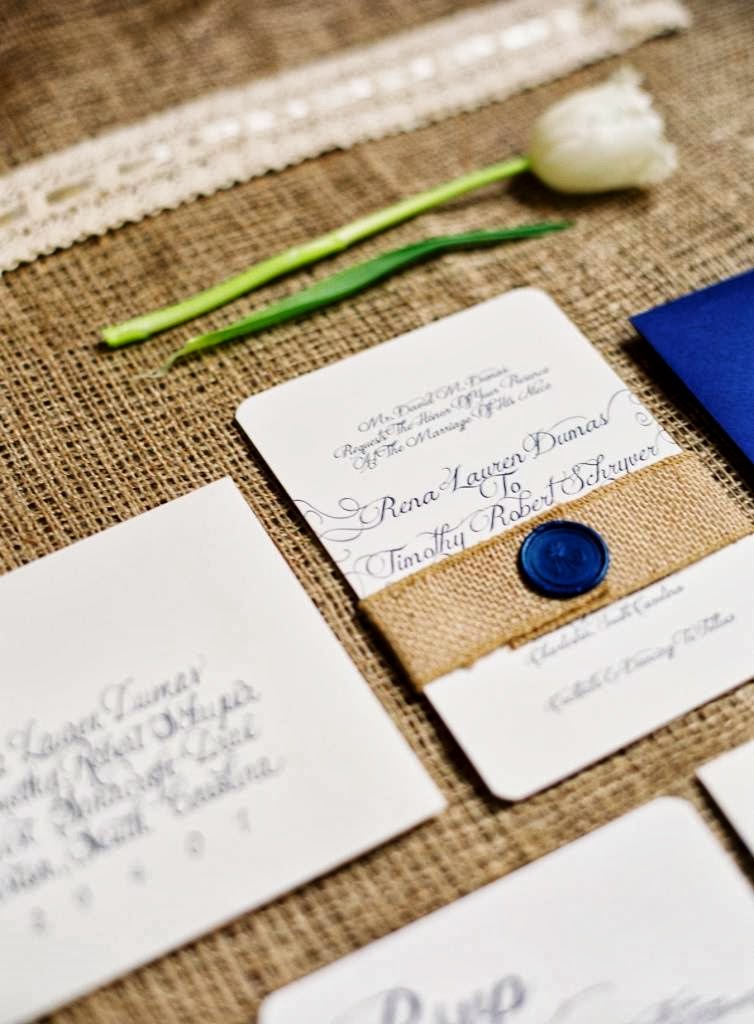 Mr. David M. Dumas
Request The Honor Of Your Presence
At The Marriage Of His Niece
Rena Lauren Dumas
To
Timothy Robert Schryver
Charleston, South Carolina
Cocktails & Dancing To Follow
Lauren Dumas
Timothy Robert Schryver
South Carolina
Rsvp